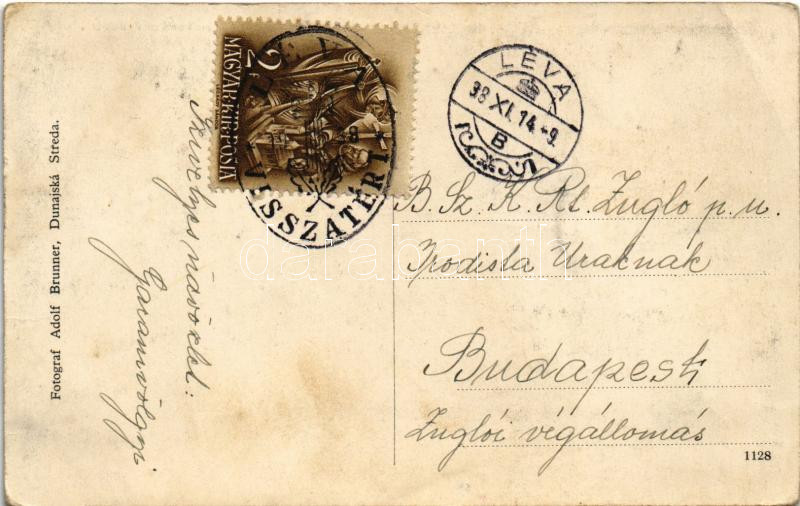 Fotograf Adolf Brunner, Dunajská Streda.
Szivelyes üdvözlet:
Garamvölgyi
2 f
MAGYAR·KIR·POSTA
LÉVA
VISSZATÉRT
LÉVA
38 XI. 14 -9.
B
B. Sz. K. Rt. Zugló p. u.
Irodista Uraknak
Budapest
Zuglói végállomás
1128
darabanth